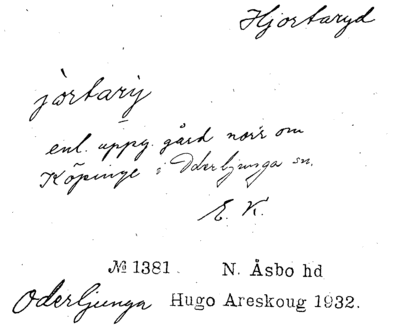 Hjortaryd
jòrtarij
enl. uppg. gård norr om
Köpinge i Oderljunga sn.
E. K.
№ 1381. N. Åsbo hd
Oderljunga Hugo Areskoug 1932.